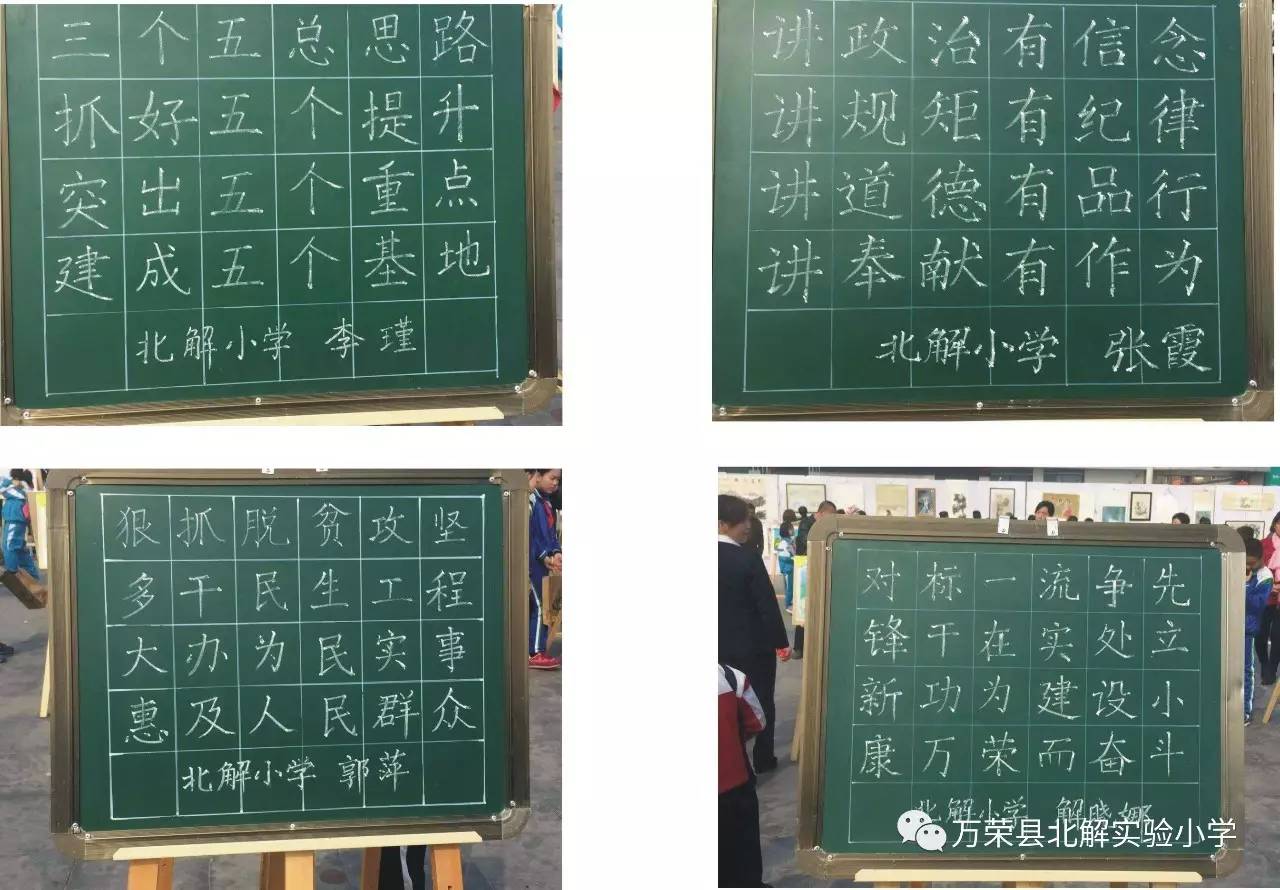 三个五总思路
抓好五个提升
突出五个重点
建成五个基地
北解小学 李瑾
讲政治有信念
讲规矩有纪律
讲道德有品行
讲奉献有作为
北解小学 张霞
狠抓脱贫攻坚
多干民生工程
大办为民实事
惠及人民群众
北解小学 郭萍
对标一流争先
锋干在实处立
新功为建设小
康万荣而奋斗
北解小学 解晓娜
万荣县北解实验小学